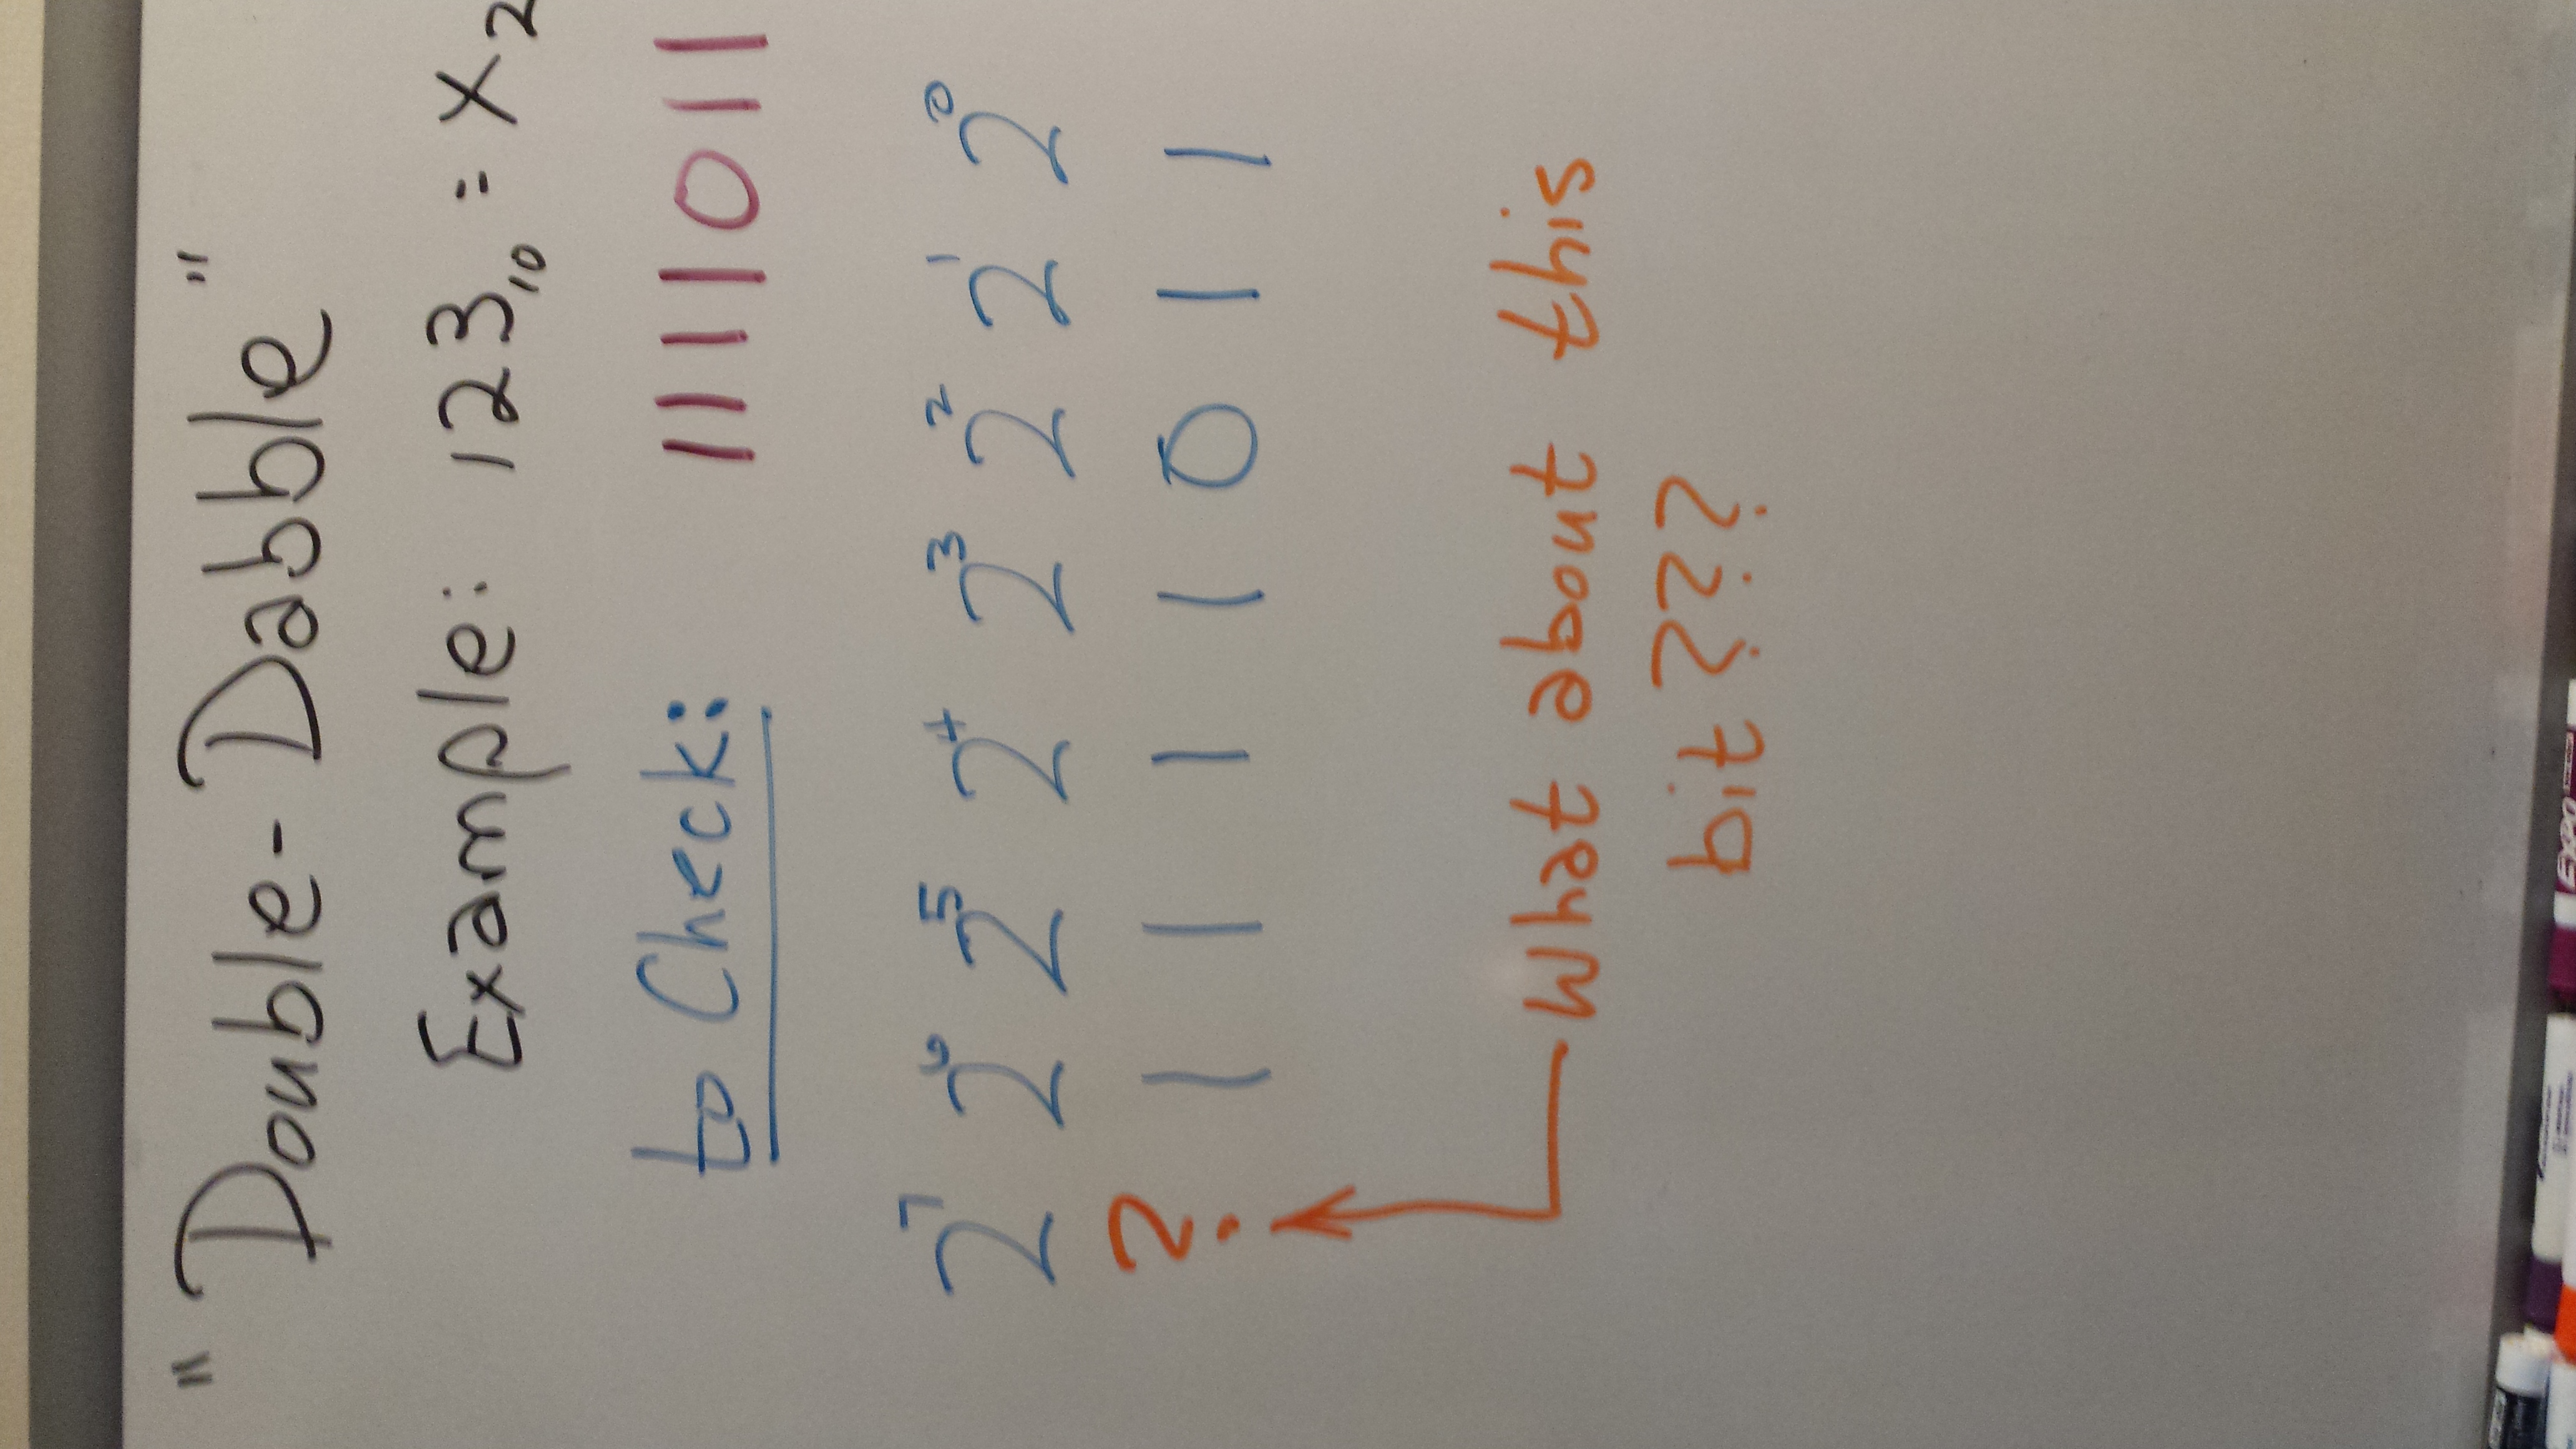 "Double-Dabble"
Example: 123₁₀ = X₂
to Check: 1111011
2⁷ 2⁶ 2⁵ 2⁴ 2³ 2² 2¹ 2⁰
? 1 1 1 1 0 1 1
What about this
bit???
EXPO